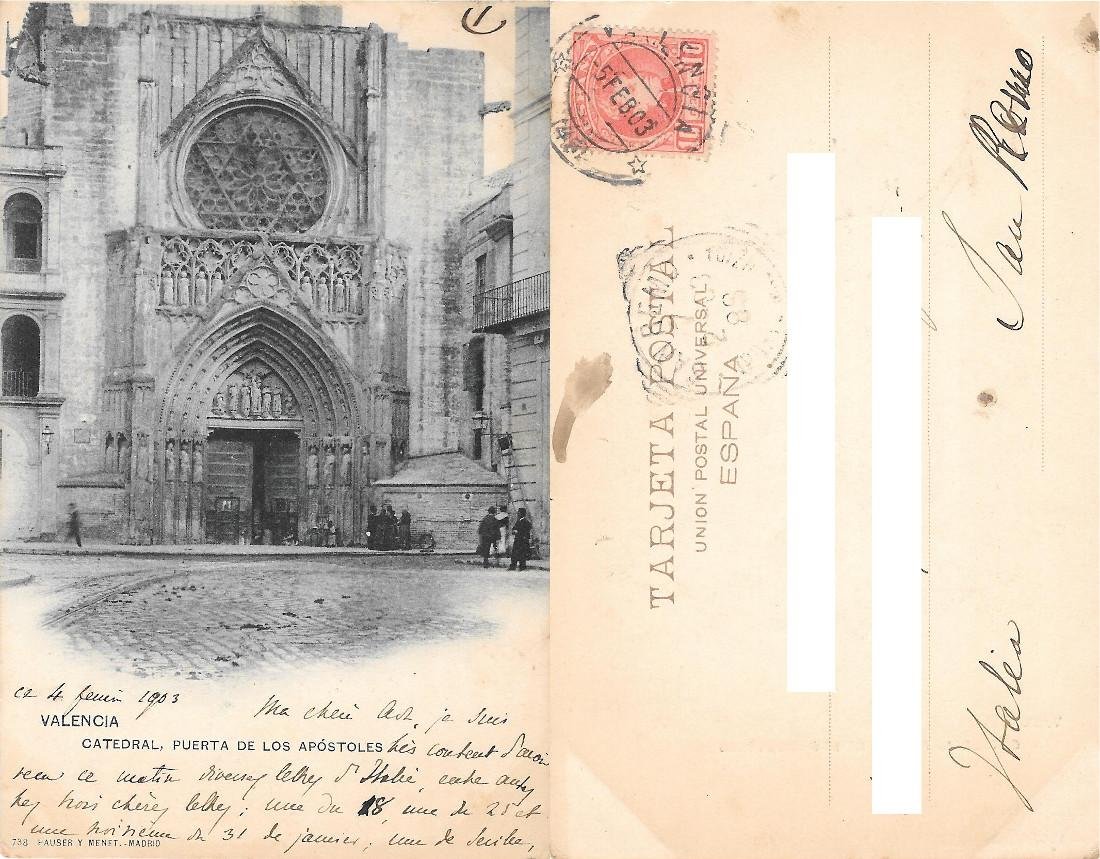 1
ce 4 février 1903
VALENCIA
Ma chère je suis
CATEDRAL, PUERTA DE LOS APÓSTOLES très content d'avoir
ce matin diverses lettres d'Italie, entre autres
trois chères lettres; une du 18, une du 25 et
une troisième du 31 de janvier, une de
738 HAUSER Y MENET.-MADRID
VALENCIA
5 FEB 03
TARJETA POSTAL
UNION POSTAL UNIVERSAL
ESPAÑA
San Remo
Italia